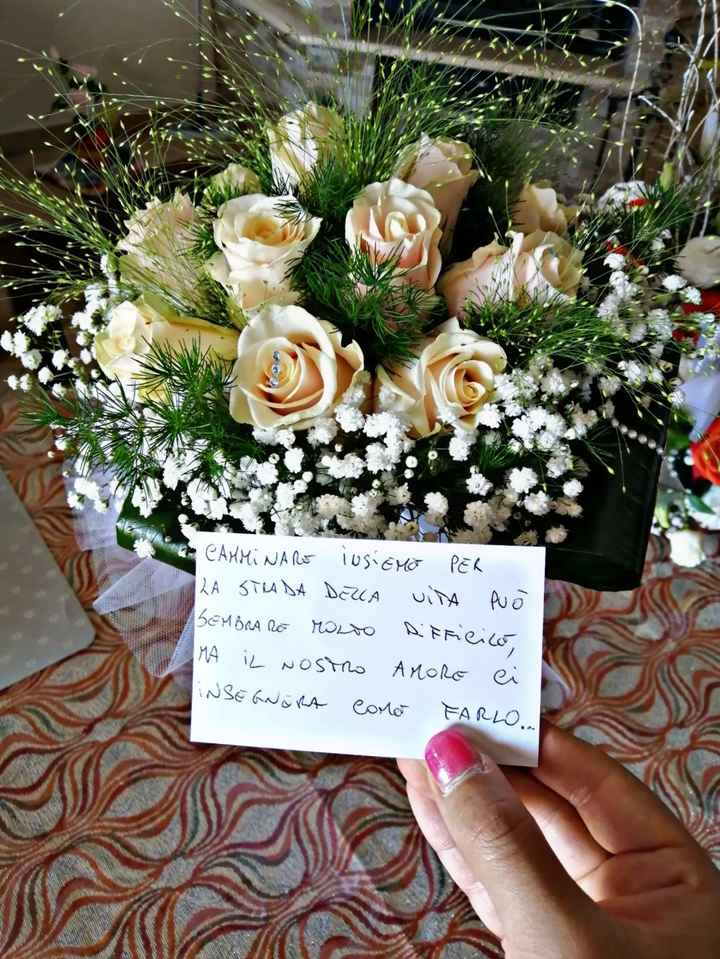 CAMMINARE INSIEME PER
LA STRADA DELLA VITA PUÒ
SEMBRARE MOLTO DIFFICILE,
MA IL NOSTRO AMORE CI
INSEGNERA COME FARLO...